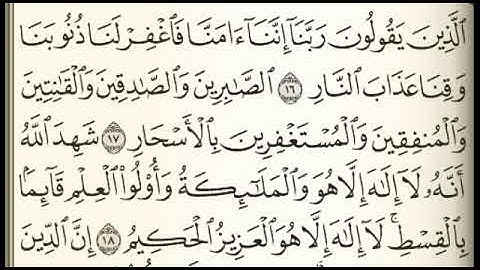 ٱلَّذِينَ يَقُولُونَ رَبَّنَآ إِنَّنَآ ءَامَنَّا فَٱغْفِرْ لَنَا ذُنُوبَنَا
وَقِنَا عَذَابَ ٱلنَّارِ ١٦ ٱلصَّٰبِرِينَ وَٱلصَّٰدِقِينَ وَٱلْقَٰنِتِينَ
وَٱلْمُنفِقِينَ وَٱلْمُسْتَغْفِرِينَ بِٱلْأَسْحَارِ ١٧ شَهِدَ ٱللَّهُ
أَنَّهُۥ لَآ إِلَٰهَ إِلَّا هُوَ وَٱلْمَلَٰٓئِكَةُ وَأُو۟لُوا۟ ٱلْعِلْمِ قَآئِمًۢا
بِٱلْقِسْطِ ۚ لَآ إِلَٰهَ إِلَّا هُوَ ٱلْعَزِيزُ ٱلْحَكِيمُ ١٨ إِنَّ ٱلدِّينَ